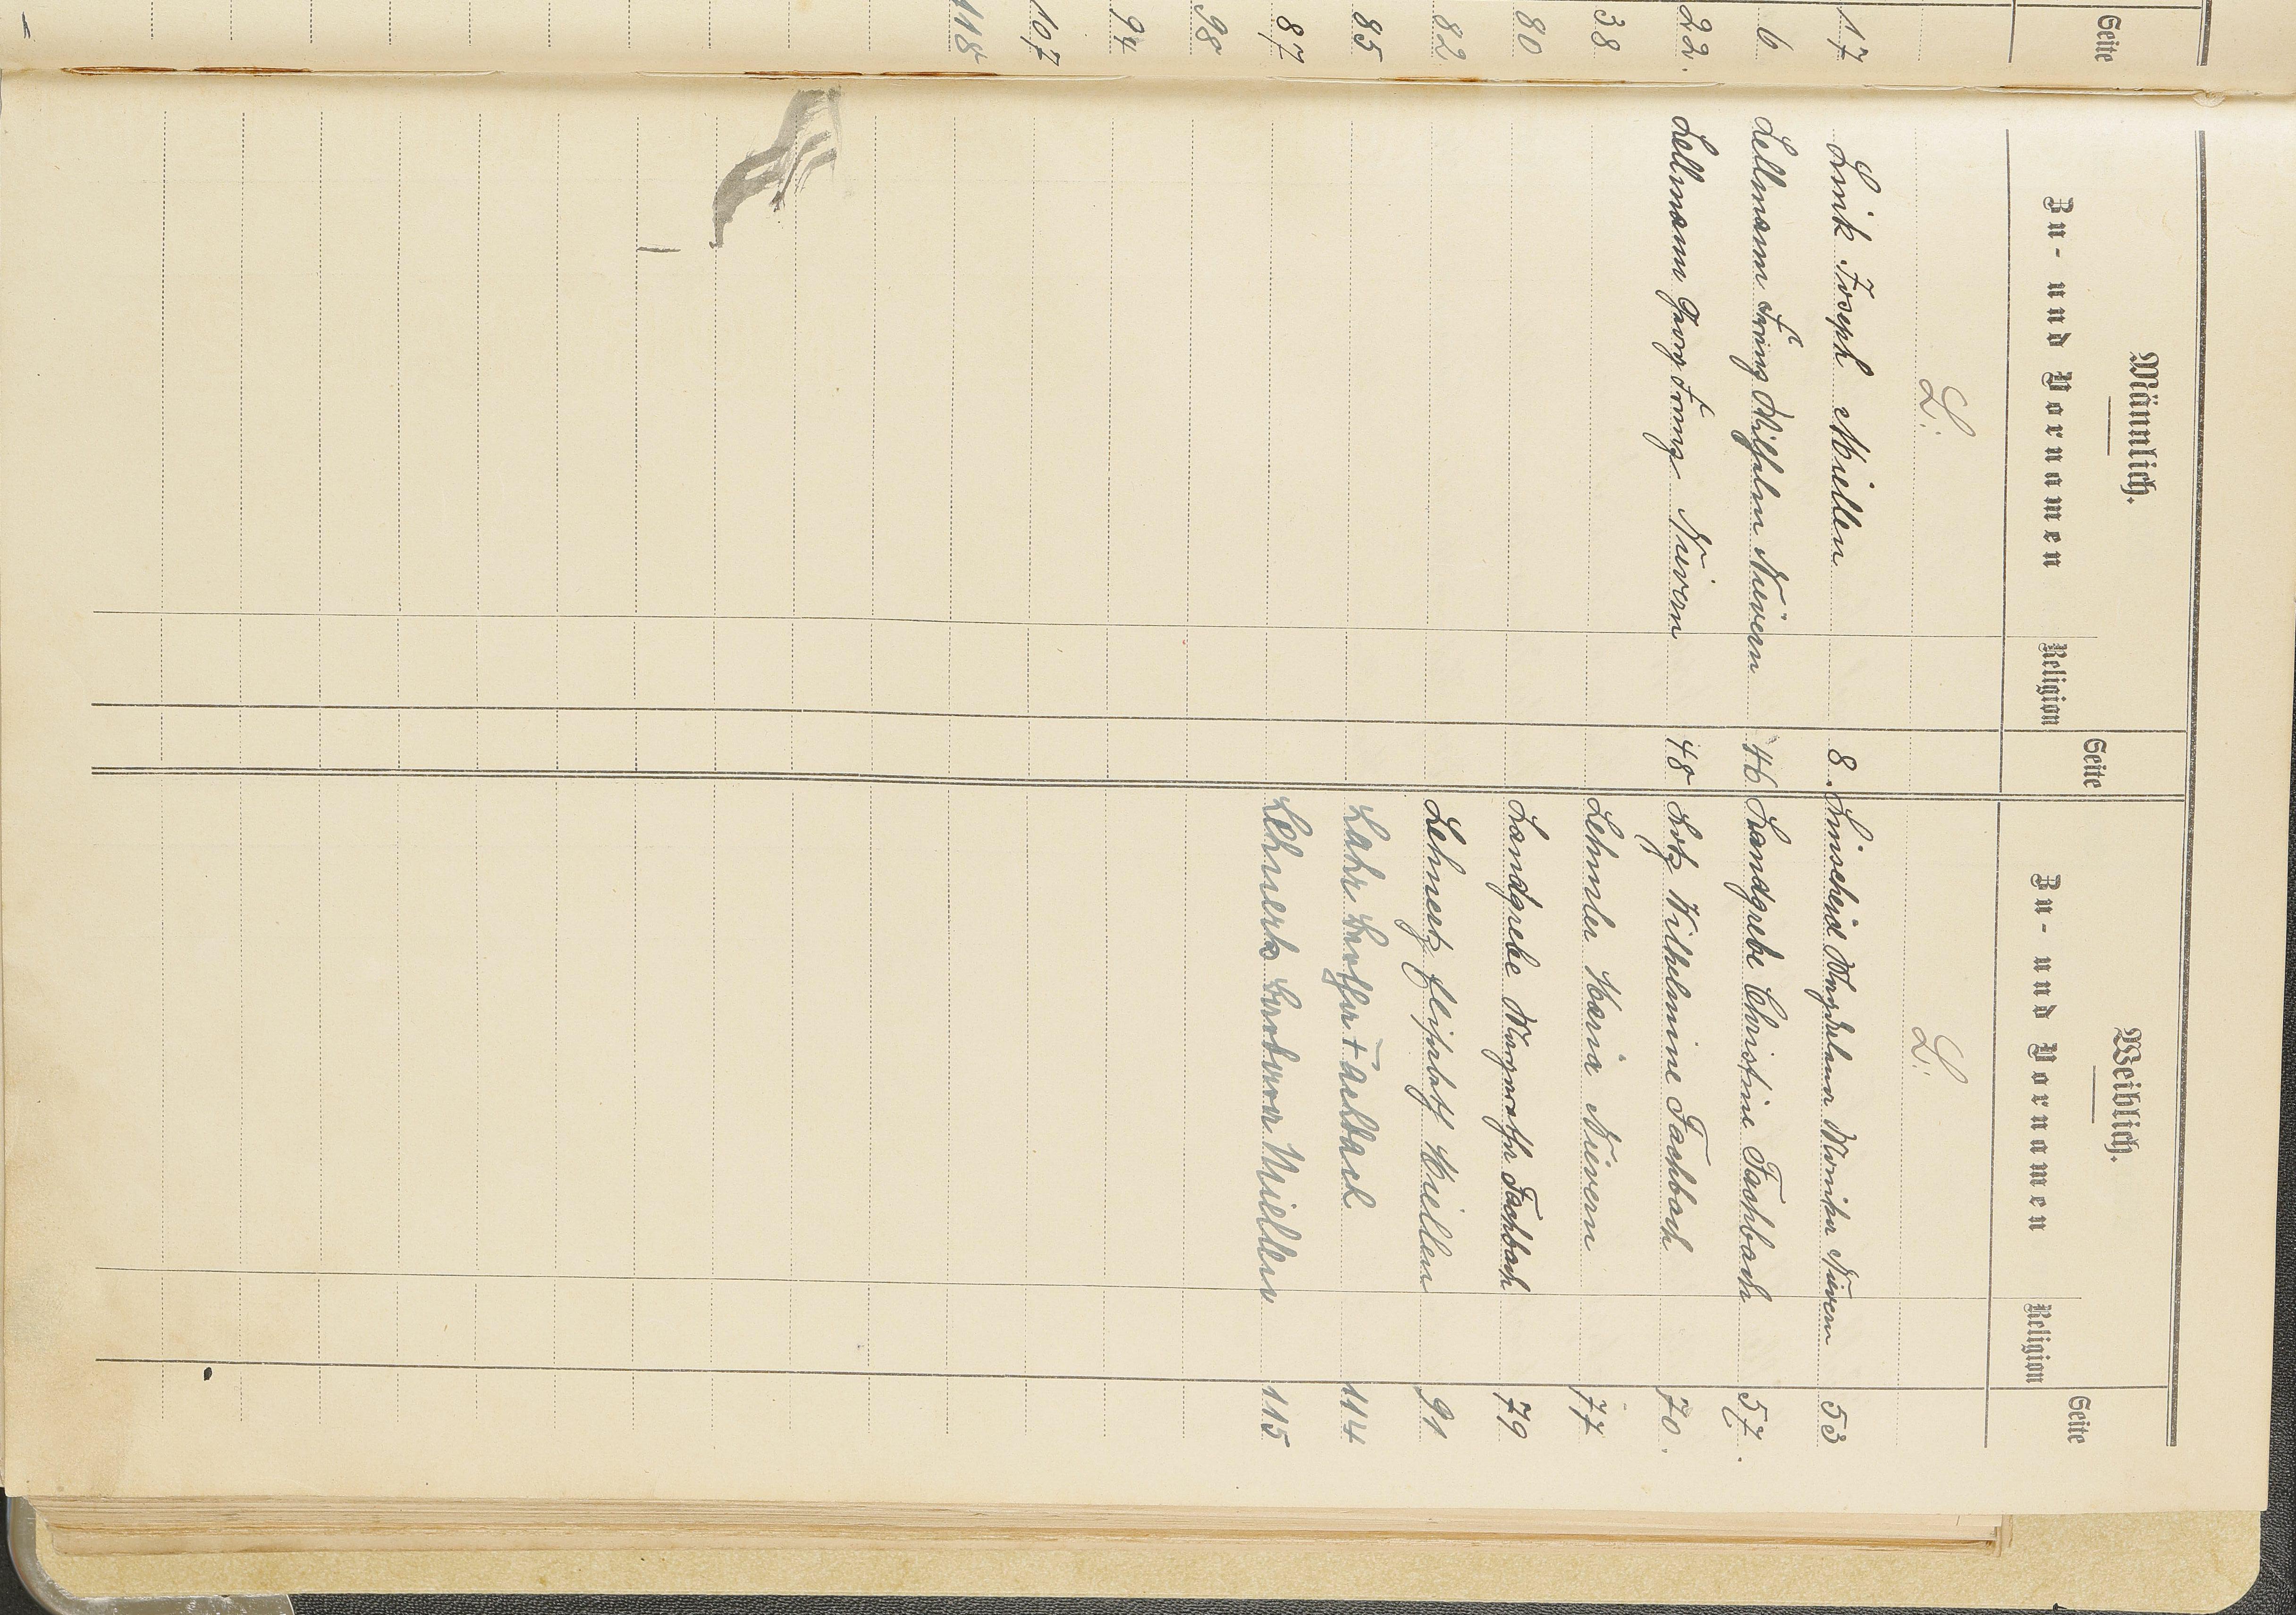 Seite
17
6.
22.
38
80
82
85
87
98
94
107
118
Männlich.
Zu- und Vornamen
Religion
Seite
L.
Link Joseph Miellen 8.
Lellmann Franz Wilhelm Nievern 46
Lellmann Georg Franz Nievern 48
Weiblich.
Zu- und Vornamen
Religion
Seite
L.
Linscheid Magdalena Monika Nievern 53
Landgrebe Christine Fachbach 57.
Lotz Wilhelmine Fachbach 70.
Lehmler Maria Nievern 77
Landgrebe Margarethe Fachbach 79
Lehnert Elisabeth Miellen 91
Lahr Fachbach 114
Lehnert Barbara Miellen 115